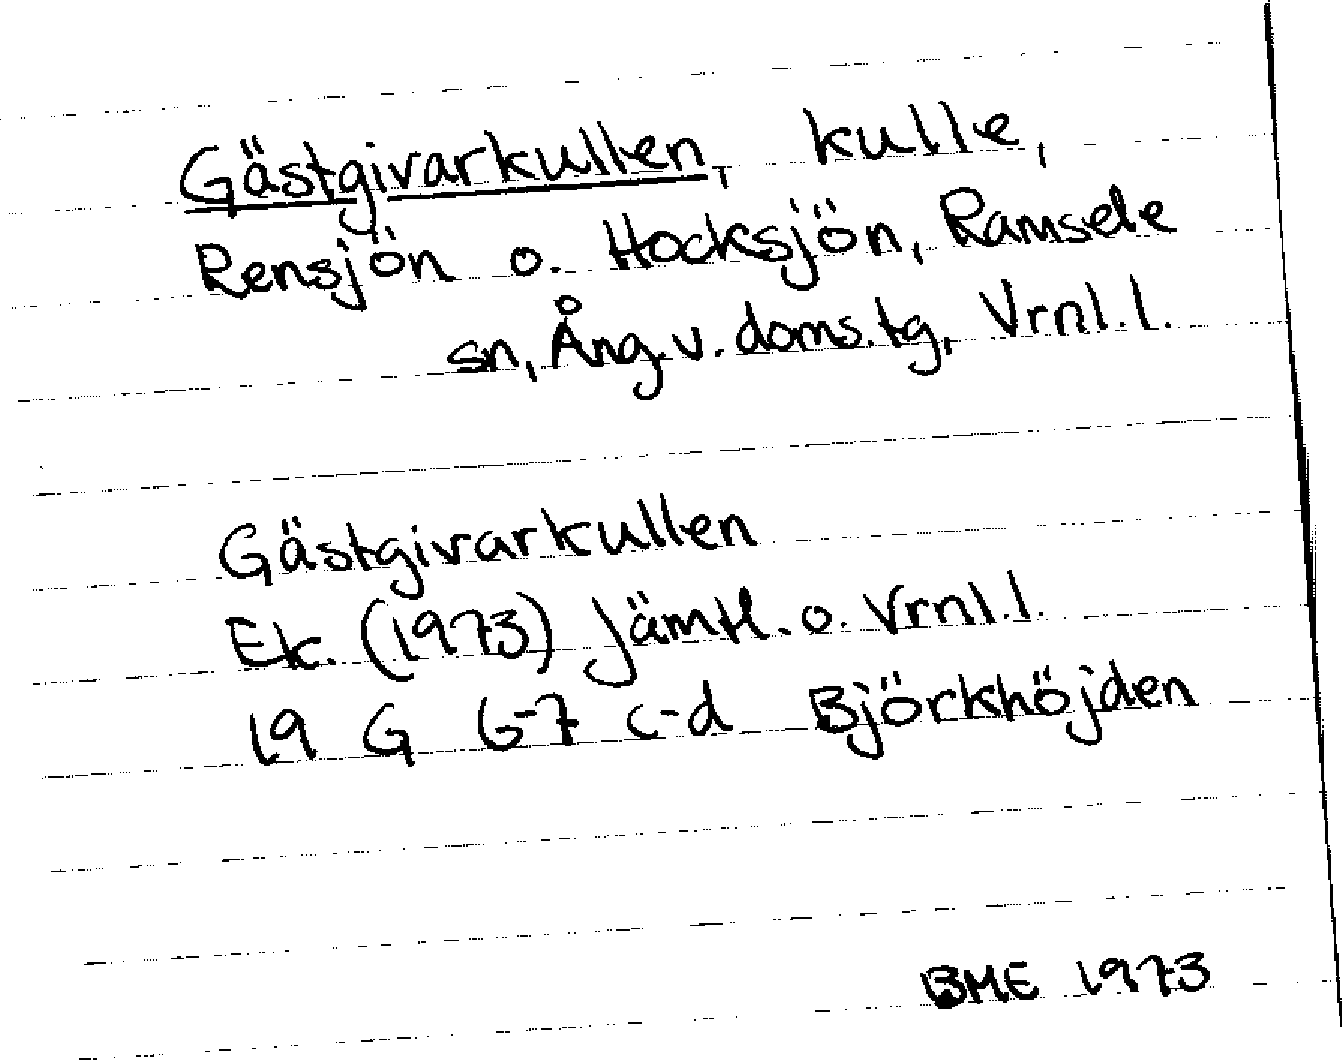 Gästgivarkullen, kulle,
Rensjön o. Hocksjön, Ramsele
sn, Ång.v. doms.tg, Vrnl.l.
Gästgivarkullen
Ek. (1973) Jämtl. o. Vrnl.l.
19 G 6-7 c-d Björkhöjden
BME 1973